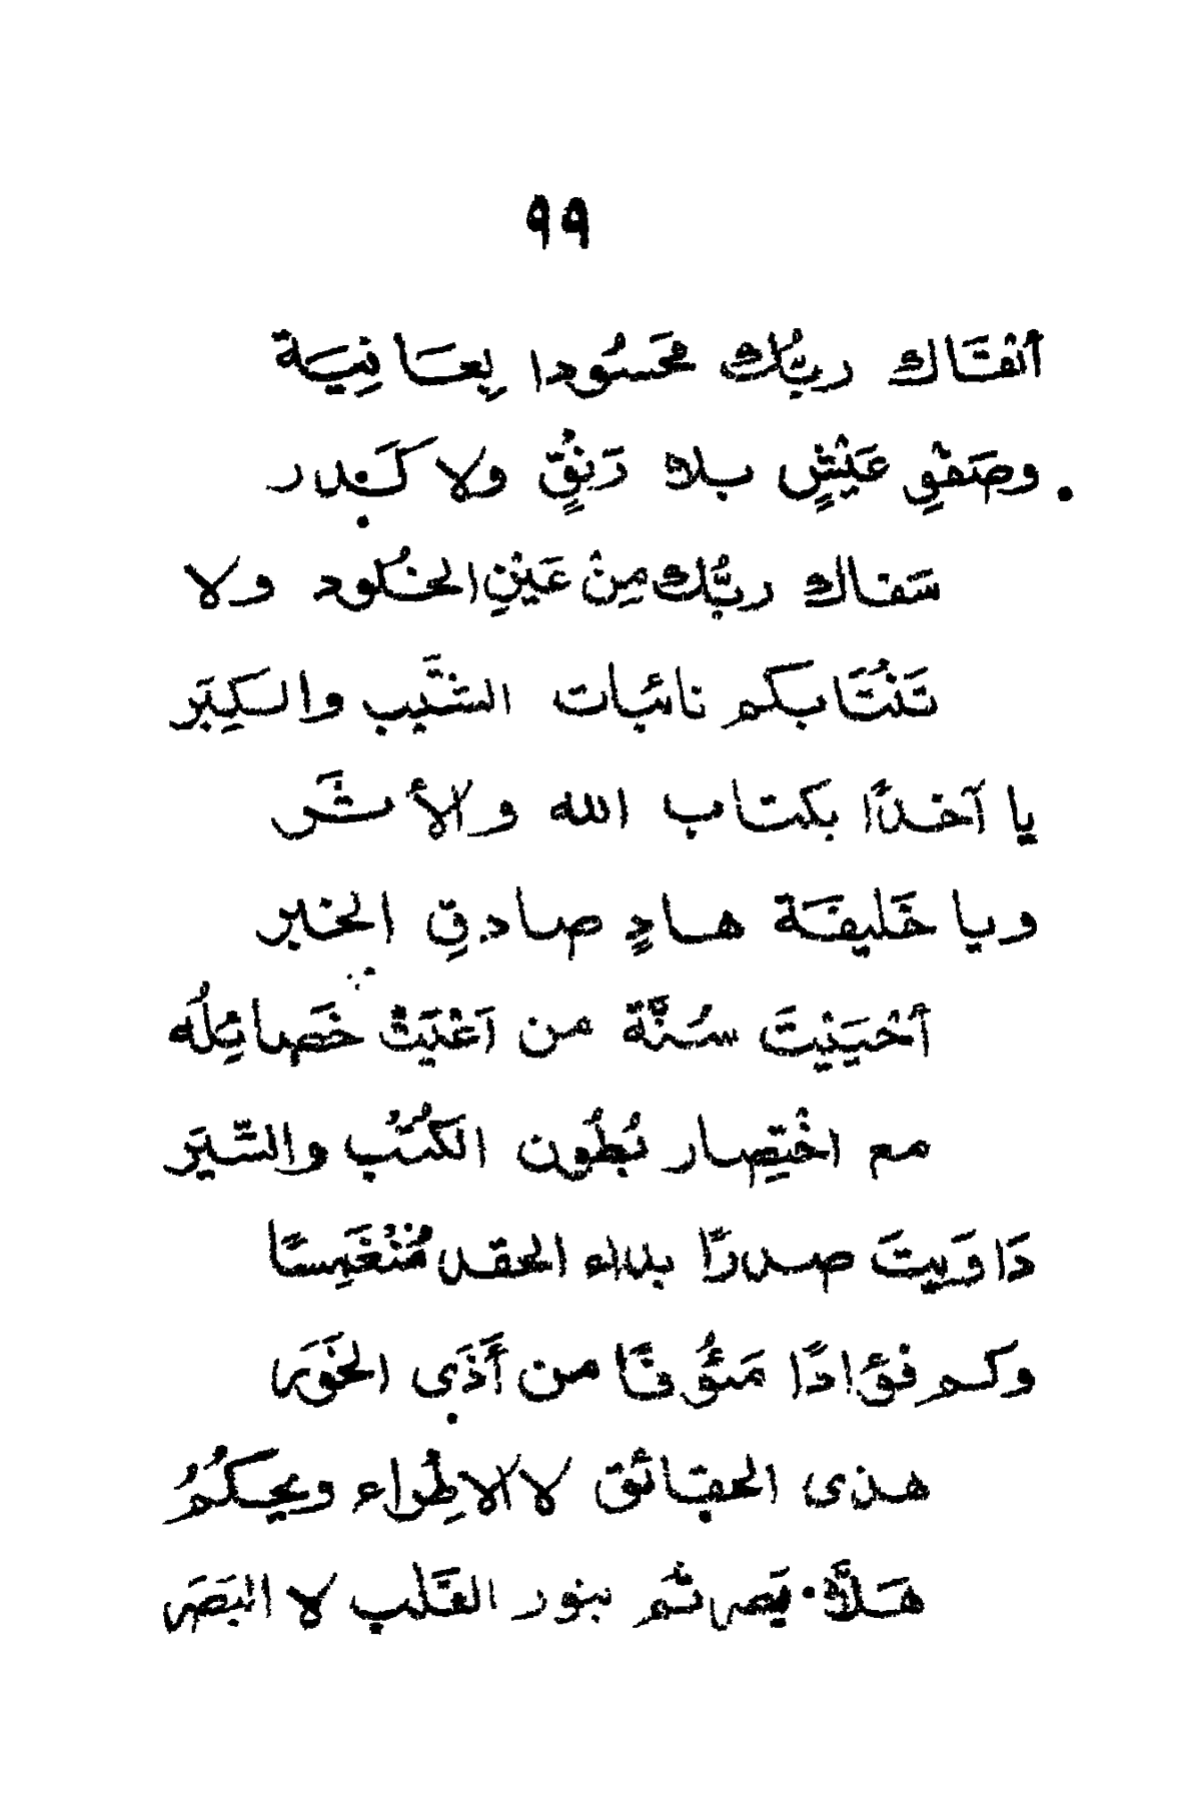 ٩٩
أبْقَاك ربُّك محَسُودا بِعَافِيَة
وصَفْوِ عَيْشٍ بلا رَنقٍ ولا كَدر
سَقاك ربُّك مِنْ عَيْنِ الخُلود ولا
تَنْتَابكم نائبات الشَّيب والكِبَر
يا آخذًا بكتاب الله والأثَر
ويا خَليفَة هادٍ صادقِ الخبر
أحْيَيْتَ سُنَّة من أعْيَتْ خَصائِلُه
مع اخْتِصار بُطُون الكُتُب والسِّيَر
دَاوَيتَ صدرًا بداء الحقد مُنْغَمِسًا
وكم فؤادًا مَئُوفًا من أَذَى الخَوَر
هذى الحقائق لا الاطْراء ويحكُمُ
هَلاَّ بَصرتُم بنور القَلب لا البَصَر